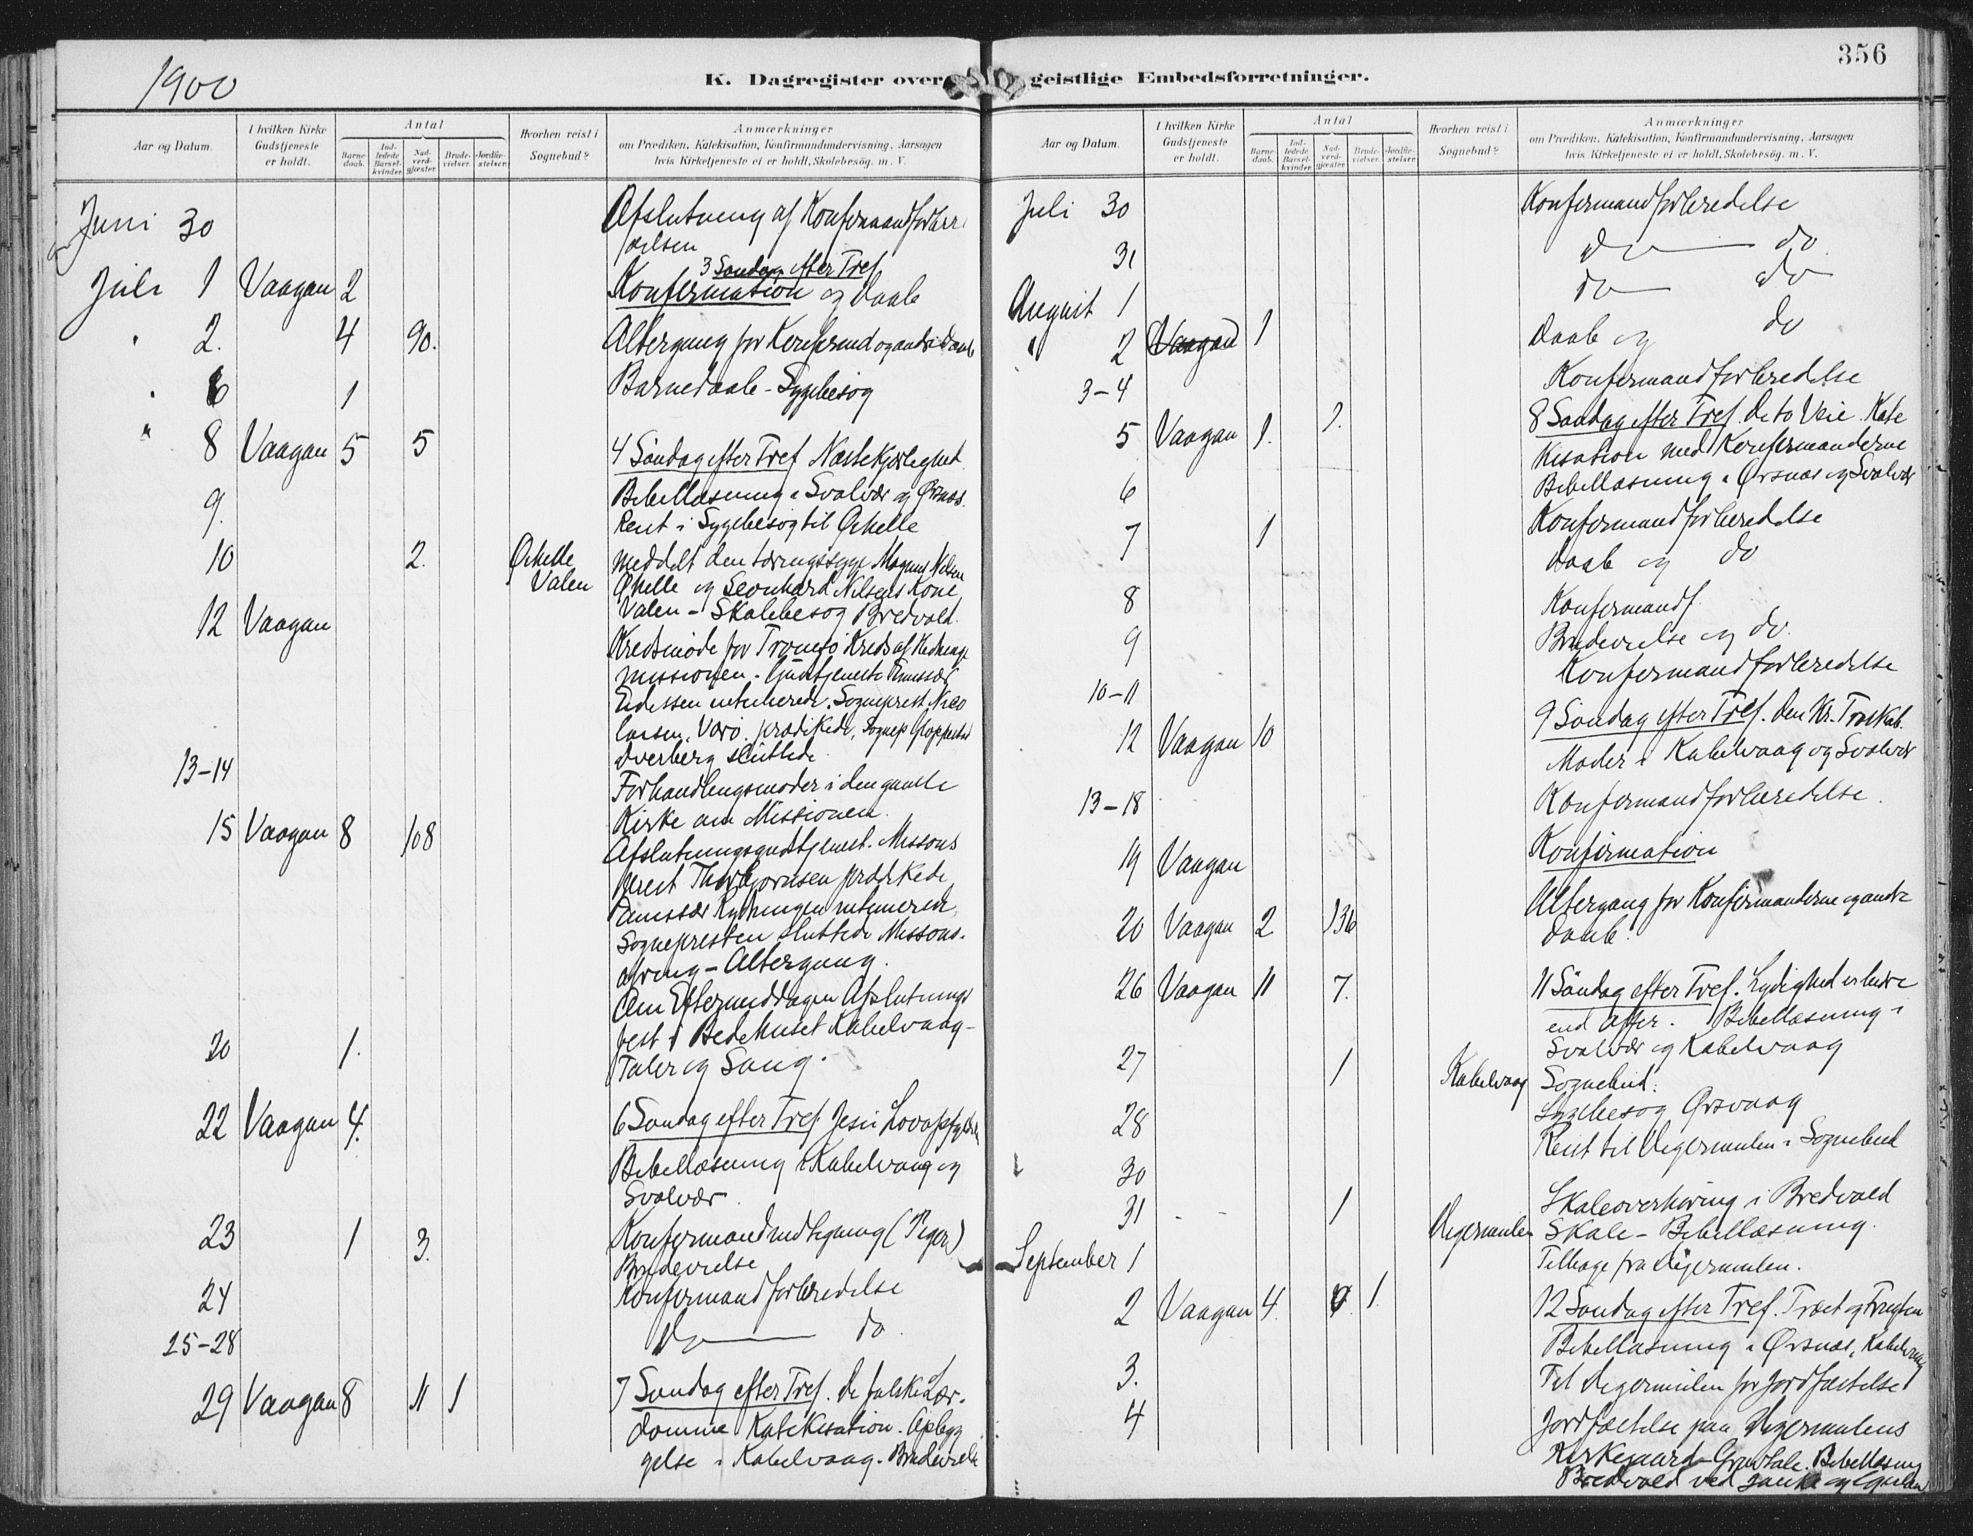 356
1900
K. Dagregister over geistlige Embedsforretninger.
Aar og Datum.
I hvilken Kirke Gudstjeneste er holdt.
Antal
Barnedaab.
Indledede Barselkvinder.
Nadverdgjæster.
Brudevielser.
Jordfæstelser.
Hvorhen reist i Sognebud?
Anmærkninger
om Prædiken, Katekisation, Konfirmandundervisning, Aarsagen
hvis Kirketjeneste ei er holdt, Skolebesög. m. V.
Juni 30 Afslutning af Konfirmandforbere
delsen
3 Søndag efter Tref
Juli 1 Vaagan 2 Konfirmation og Daab
" 2. 4 90. Altergang for Konfirmd og andre Daab
" 6 1 Barnedaab - Sygebesøg
" 8 Vaagan 5 5 4 Søndag efter Tref Næstekjærlighed
Bibellæsning i Svolvær og Ørsnæs.
9. Reist i Sygebesøg til Ørhelle
10 2. Ørhelle Valen meddelt den tæringssyge Magnus Nilsen
Ørhelle og Leonhard Nilsens Kone
Valen - Skolebesøg Bredvold.
12 Vaagan Kredsmøde for Tromsø Kreds af Hedninge
missionen. Gudstjeneste
Eidissen intonerede. Sogneprest Nico
laisen, Værø, prædikede, Sognep
Dverberg sluttede.
13-14 Forhandlingsmøder i den gamle
Kirke om Missionen.
15 Vaagan 8 108 Afslutningsgudstjenest. Missons
prest Thorbjørnsen prædikede
intonerede,
Sognepresten sluttede Missons-
ofring - Altergang.
Om Eftermiddagen Afslutnings
fest i Bedehuset Kabelvaag -
20 1. Taler og Sang.
22 Vaagan 4. 6 Søndag efter Tref. Jesu
Bibellæsning i Kabelvaag og
Svolvær.
23 1 3. Konfirmandindtegning (Piger)
Brudevielse
24 Konfirmandforberedelse
25-28 do do.
29 Vaagan 8 11 1 7 Søndag efter Tref. De falske Lær-
domme Katekisation. Opbyg
gelse i Kabelvaag. Brudevielse
Aar og Datum.
I hvilken Kirke Gudstjeneste er holdt.
Antal
Barnedaab.
Indledede Barselkvinder.
Nadverdgjæster.
Brudevielser.
Jordfæstelser.
Hvorhen reist i Sognebud?
Anmærkninger
om Prædiken, Katekisation, Konfirmandundervisning, Aarsagen
hvis Kirketjeneste ei er holdt, Skolebesög. m. V.
Juli 30 Konfirmandforberedelse
31 do do.
August 1 do do
" 2 Vaagan 1 Daab og do
3-4 Konfirmandforberedelse
5 Vaagan 1. 1. 8 Søndag efter Tref De to Veie. Kate
kisation med Konfirmanderne
Bibellæsning i Ørsnæs og Svolvær
6 Konfirmandforberedelse
7 1 Daab og do
8 Konfirmandf.
9 Brudevielse og do.
10-11 Konfirmandforberedelse
12 Vaagan 10 9 Søndag efter Tref. Den kr. Troskab.
Møder i Kabelvaag og Svolvær
13-18 Konfirmandforberedelse.
19 Vaagan Konfirmation
20 Vaagan 2 136 Altergang for Konfirmanderne og andre
Daab.
26 Vaagan 11 7. 11 Søndag efter Tref. Lydighed er bedre
end Offer. Bibellæsning i
Svolvær og Kabelvaag
27 1 Kabelvaag Sognebud.
28 Sygebesøg Ørsvaag
30 Reist til Digermulen i Sognebud
31 - - 1 Digermulen Skoleoverhøring i Bredvold
Skole - Bibellæsning.
September 1 Tilbage fra Digermulen.
2 Vaagan 4. 1. 12 Søndag efter Tref. Træet og Frugten
Bibellæsning i Ørsnæs, Kabelvaag
3. Til Digermulen for Jordfæstelse
4 Jordfæstelse paa Digermulens
Kirkegaard - Gravtale. Bibellæsning
Bredvold ved